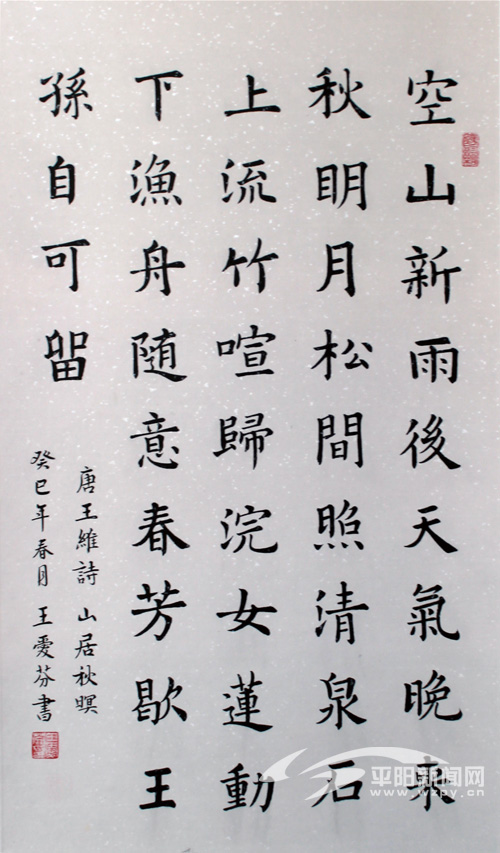 空山新雨後天氣晚來
秋明月松間照清泉石
上流竹喧歸浣女蓮動
下漁舟随意春芳歇王
孫自可留
唐王維詩 山居秋暝
癸巳年春月 王愛芬書
平阳新闻网
www.wzpy.cn